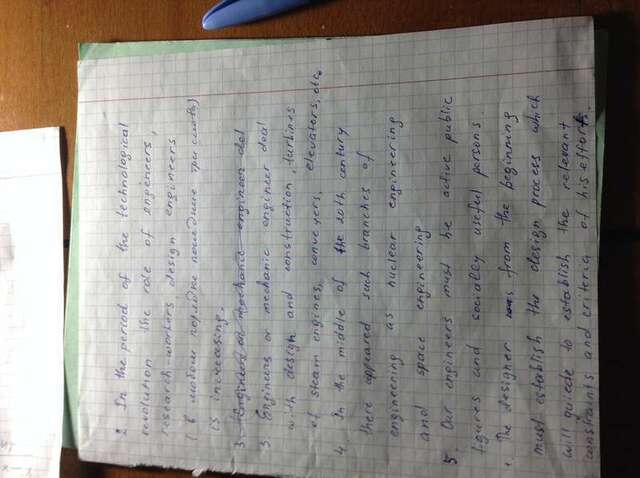 2. In the period of the technological
revolution the role of engeneers,
research workers design engineers
(в любом порядке последние три слова)
is increasing.
3. Engineers or mechanic engineer deal
3 Engineers or mechanic engineer deal
with design and construction, turbines
of steam engines, conveyers, elevators, etc.
4. In the middle of the 20th century
there appeared such branches of
engineering as nuclear engineering
and space engineering
5 Our engineers must be active public
figures and socially useful persons
1. The designer from the beginning
must establish the design process which
will guide to establish the relevant
constraints and criteria of his efforts.